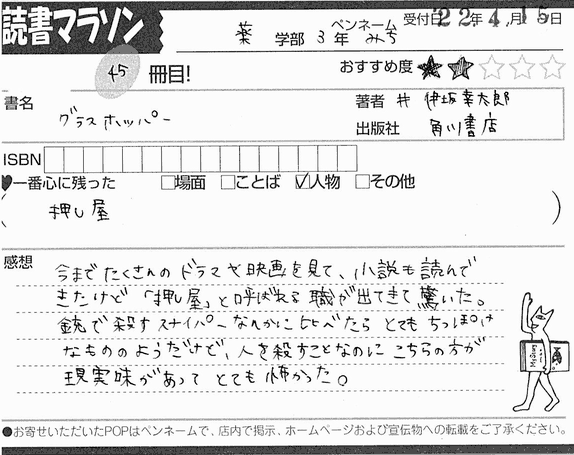 読書マラソン
薬 学部 3年 ペンネーム みち
受付日 '22年 4月 15日
45 冊目!
おすすめ度 ★★☆☆☆
書名 グラスホッパー
著者 井 伊坂幸太郎
出版社 角川書店
ISBN
♥一番心に残った □場面 □ことば ☑人物 □その他
( 押し屋 )
感想
今までたくさんのドラマや映画を見て、小説も読んで
きたけど「押し屋」と呼ばれる職が出てきて驚いた。
銃で殺すスナイパーなんかに比べたらとてもちっぽけ
なもののようだけど、人を殺すことなのにこちらの方が
現実味があって、とても怖かった。
●お寄せいただいたPOPはペンネームで、店内で掲示、ホームページおよび宣伝物への転載をご了承ください。